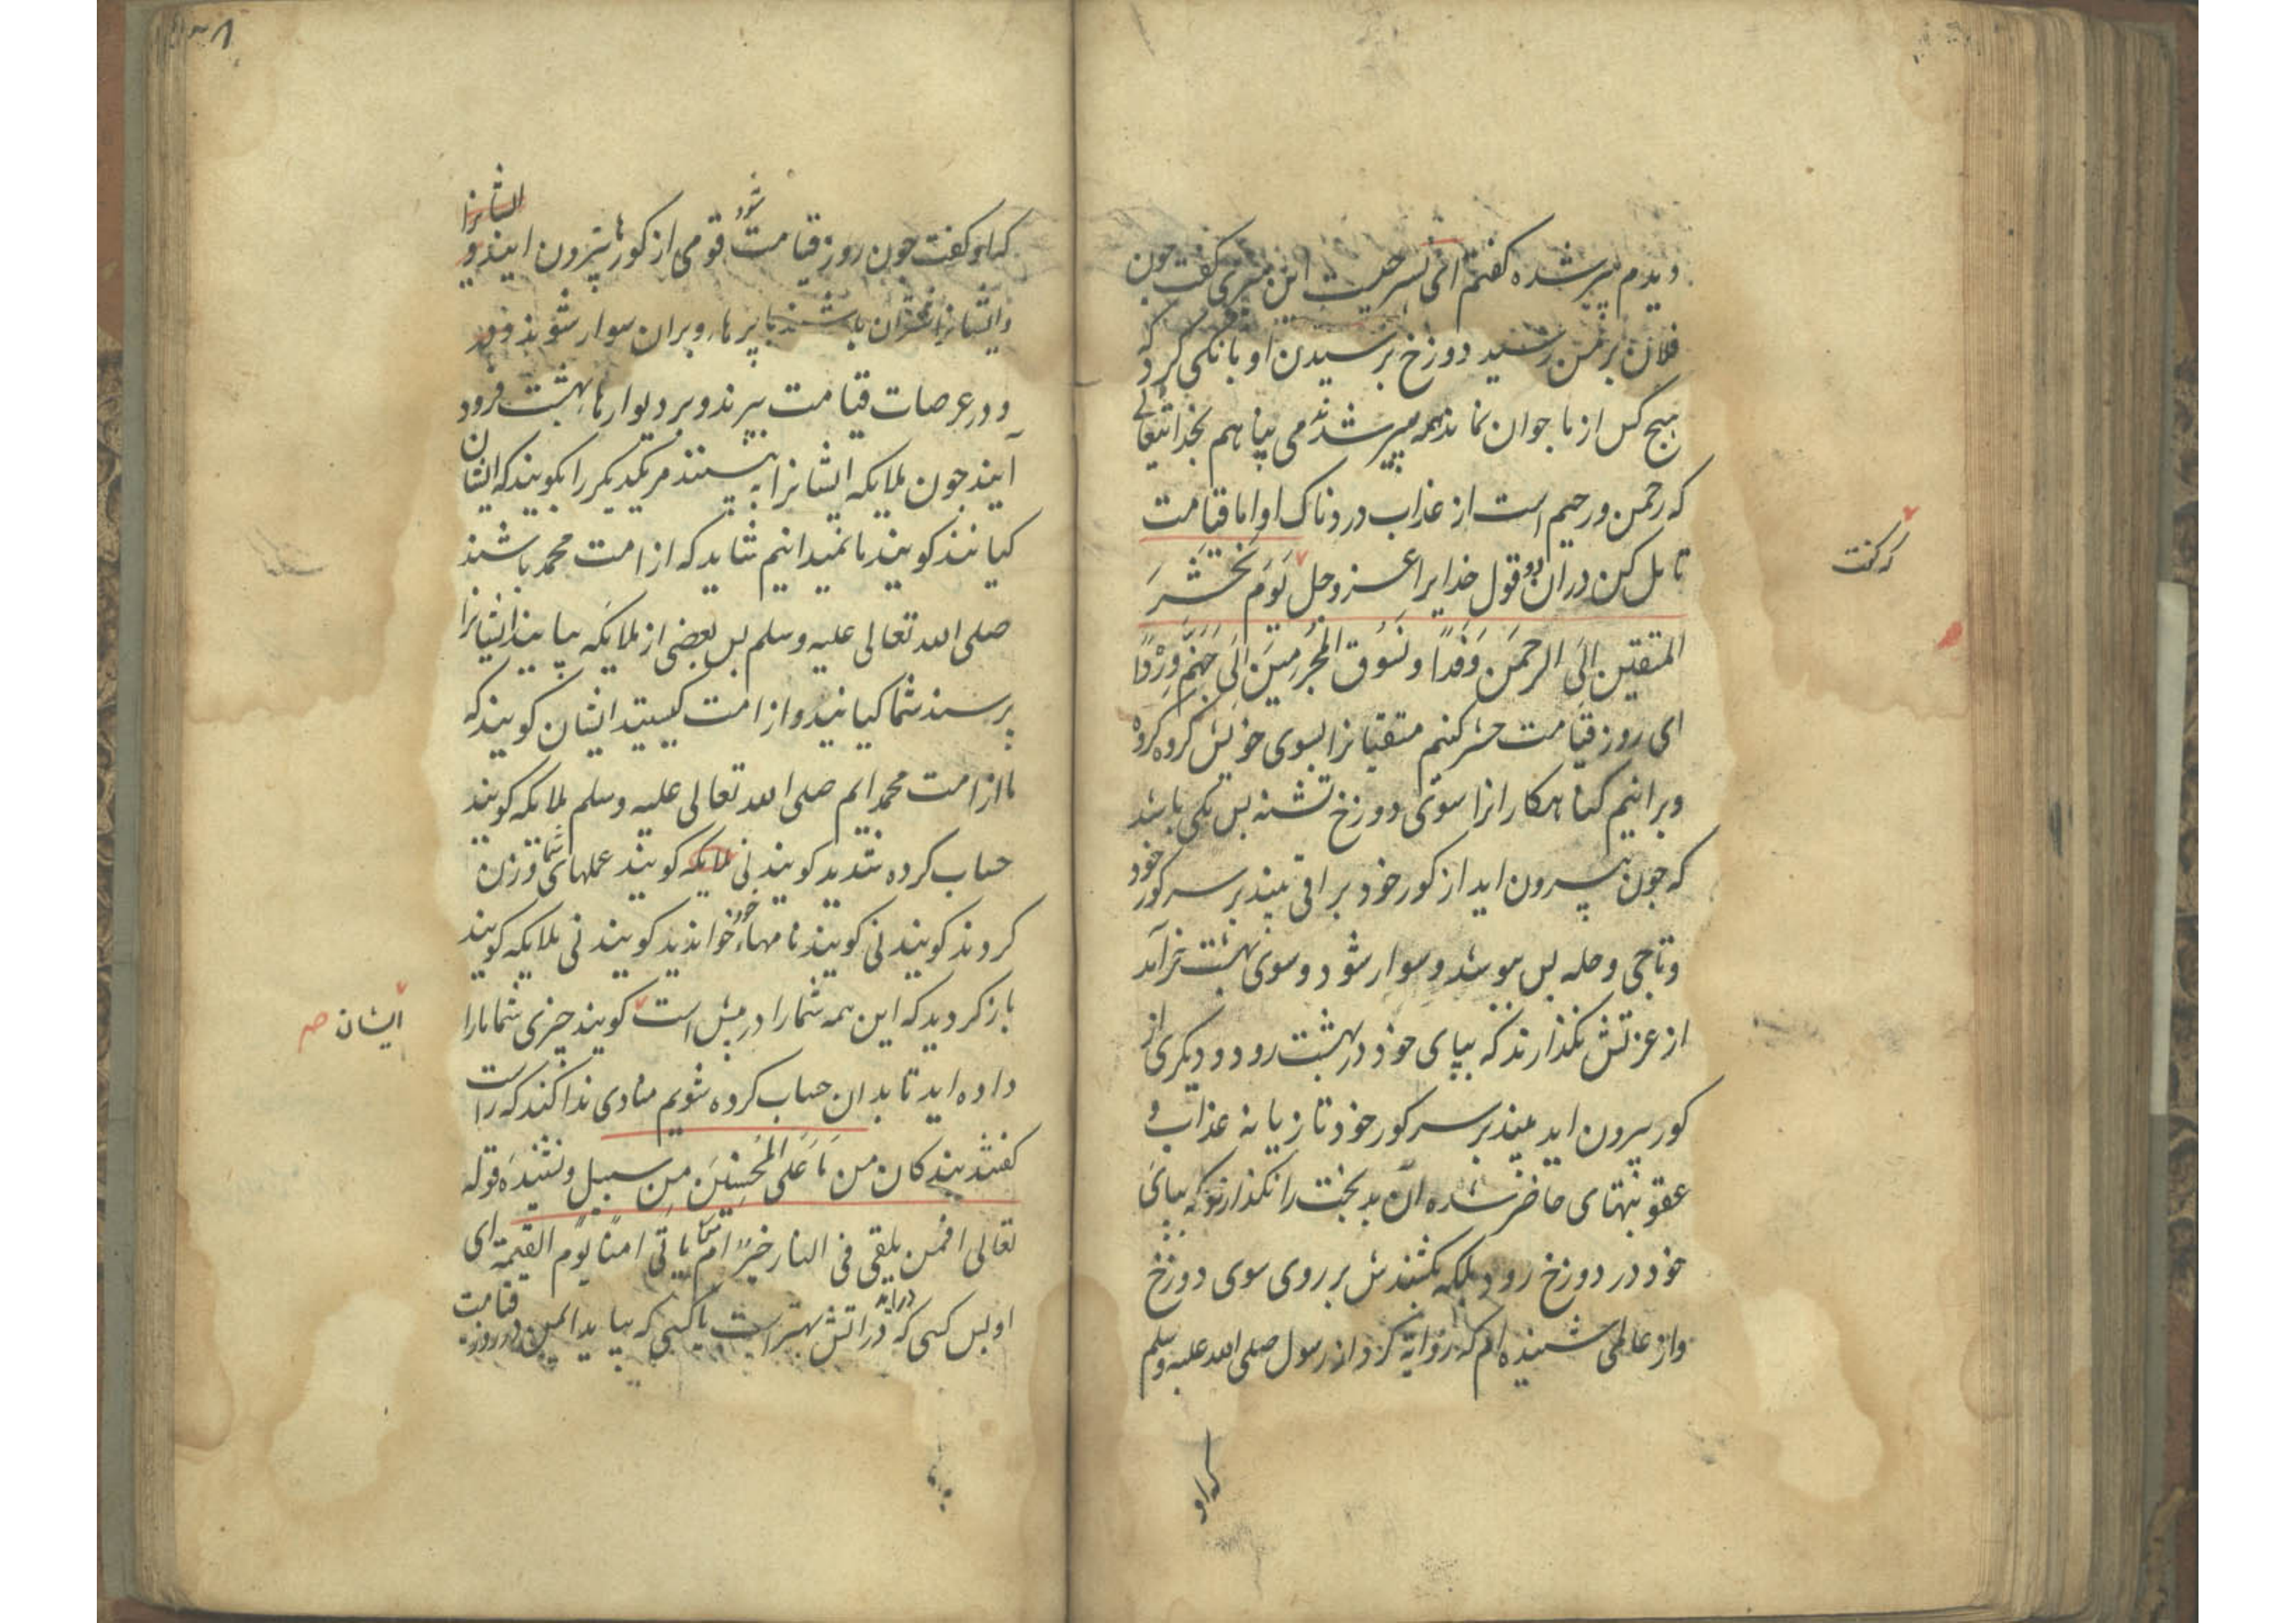 دیدم پیر شده کفتم ای پسر چیست این پیری کفت چون
فلان بر من رسید دوزخ بر رسیدن او بانکی کرد که
هیچ کس از ما جوان نماند همه پیر شدند می پناهم بخدایتعالی
که رحمن و رحیم است از عذاب دردناک او اما قیامت
تامل کن دران دو قول خدایرا عز و جل یَوْمَ نَحْشُرَ
المتقین اِلَی الرحمَن وَفدًا و نَسُوق المُجْرِمِینَ اِلَی جَهَنَّمَ وِرْدًا
ای روز قیامت حشر کنیم متقیانرا بسوی خویش کروه کروه
و برانیم کناهکارانرا سوی دوزخ تشنه بس یکی باشد
که چون بیرون اید از کور خود براقی بیند بر سر کور خود
و تاجی و حله بس پوشد و سوار شود و سوی بهشت خرآمد
از عزتش نکذارند که بپای خود در بهشت رود و دیکری از
کور بیرون اید بیند بر سر کور خود تازیانه عذاب و
عقوبتهای حاضر شده ان بدبخت را نکذارند که بپای
خود در دوزخ رود بلکه بکشندش بر روی سوی دوزخ
و از عالمی شنیده ام که روایة کرد از رسول صلی الله علیه وسلم
که کفت
که او
که او کفت چون روز قیامت شود قومی از کورها بیرون ایند و
ایشانرا
و ایشانرا اشتران باشند با پرها و بران سوار شوند و
و در عرصات قیامت بپرند و بر دیوارهاء بهشت فرود
آیند چون ملایکه ایشانرا به بینند مر یکدیکر را بکویند که ایشان
کیانند کویند ما نمیدانیم شاید که از امت محمد باشند
صلی الله تعالی علیه وسلم بس بعضی از ملایکه بیایند ایشانرا
پرسند شما کیانید و از امت کیستید ایشان کویند که
ما از امت محمد ایم صلی الله تعالی علیه وسلم ملایکه کویند
حساب کرده شدید کویند نی ملایکه کویند عملهای شما وزن
کردند کویند نی کویند نامهاء خود خواندید کویند نی ملایکه کویند
باز کردید که این همه شمارا در پیش است کویند چیزی شما مارا
داده اید تا بدان حساب کرده شویم منادی ندا کند که راست
کفتند بندکان من مَا عَلَی المُحْسِنِینَ مِن سبیل و نشنیده قوله
تعالی افمن یلقی فی النار خیرٌ ام من یاتی امنا یوم القیمة ای
او بس کسی که دراید در اتش بهتر است یا کسی که بیاید ایمن در روز قیامت
ایشان صح